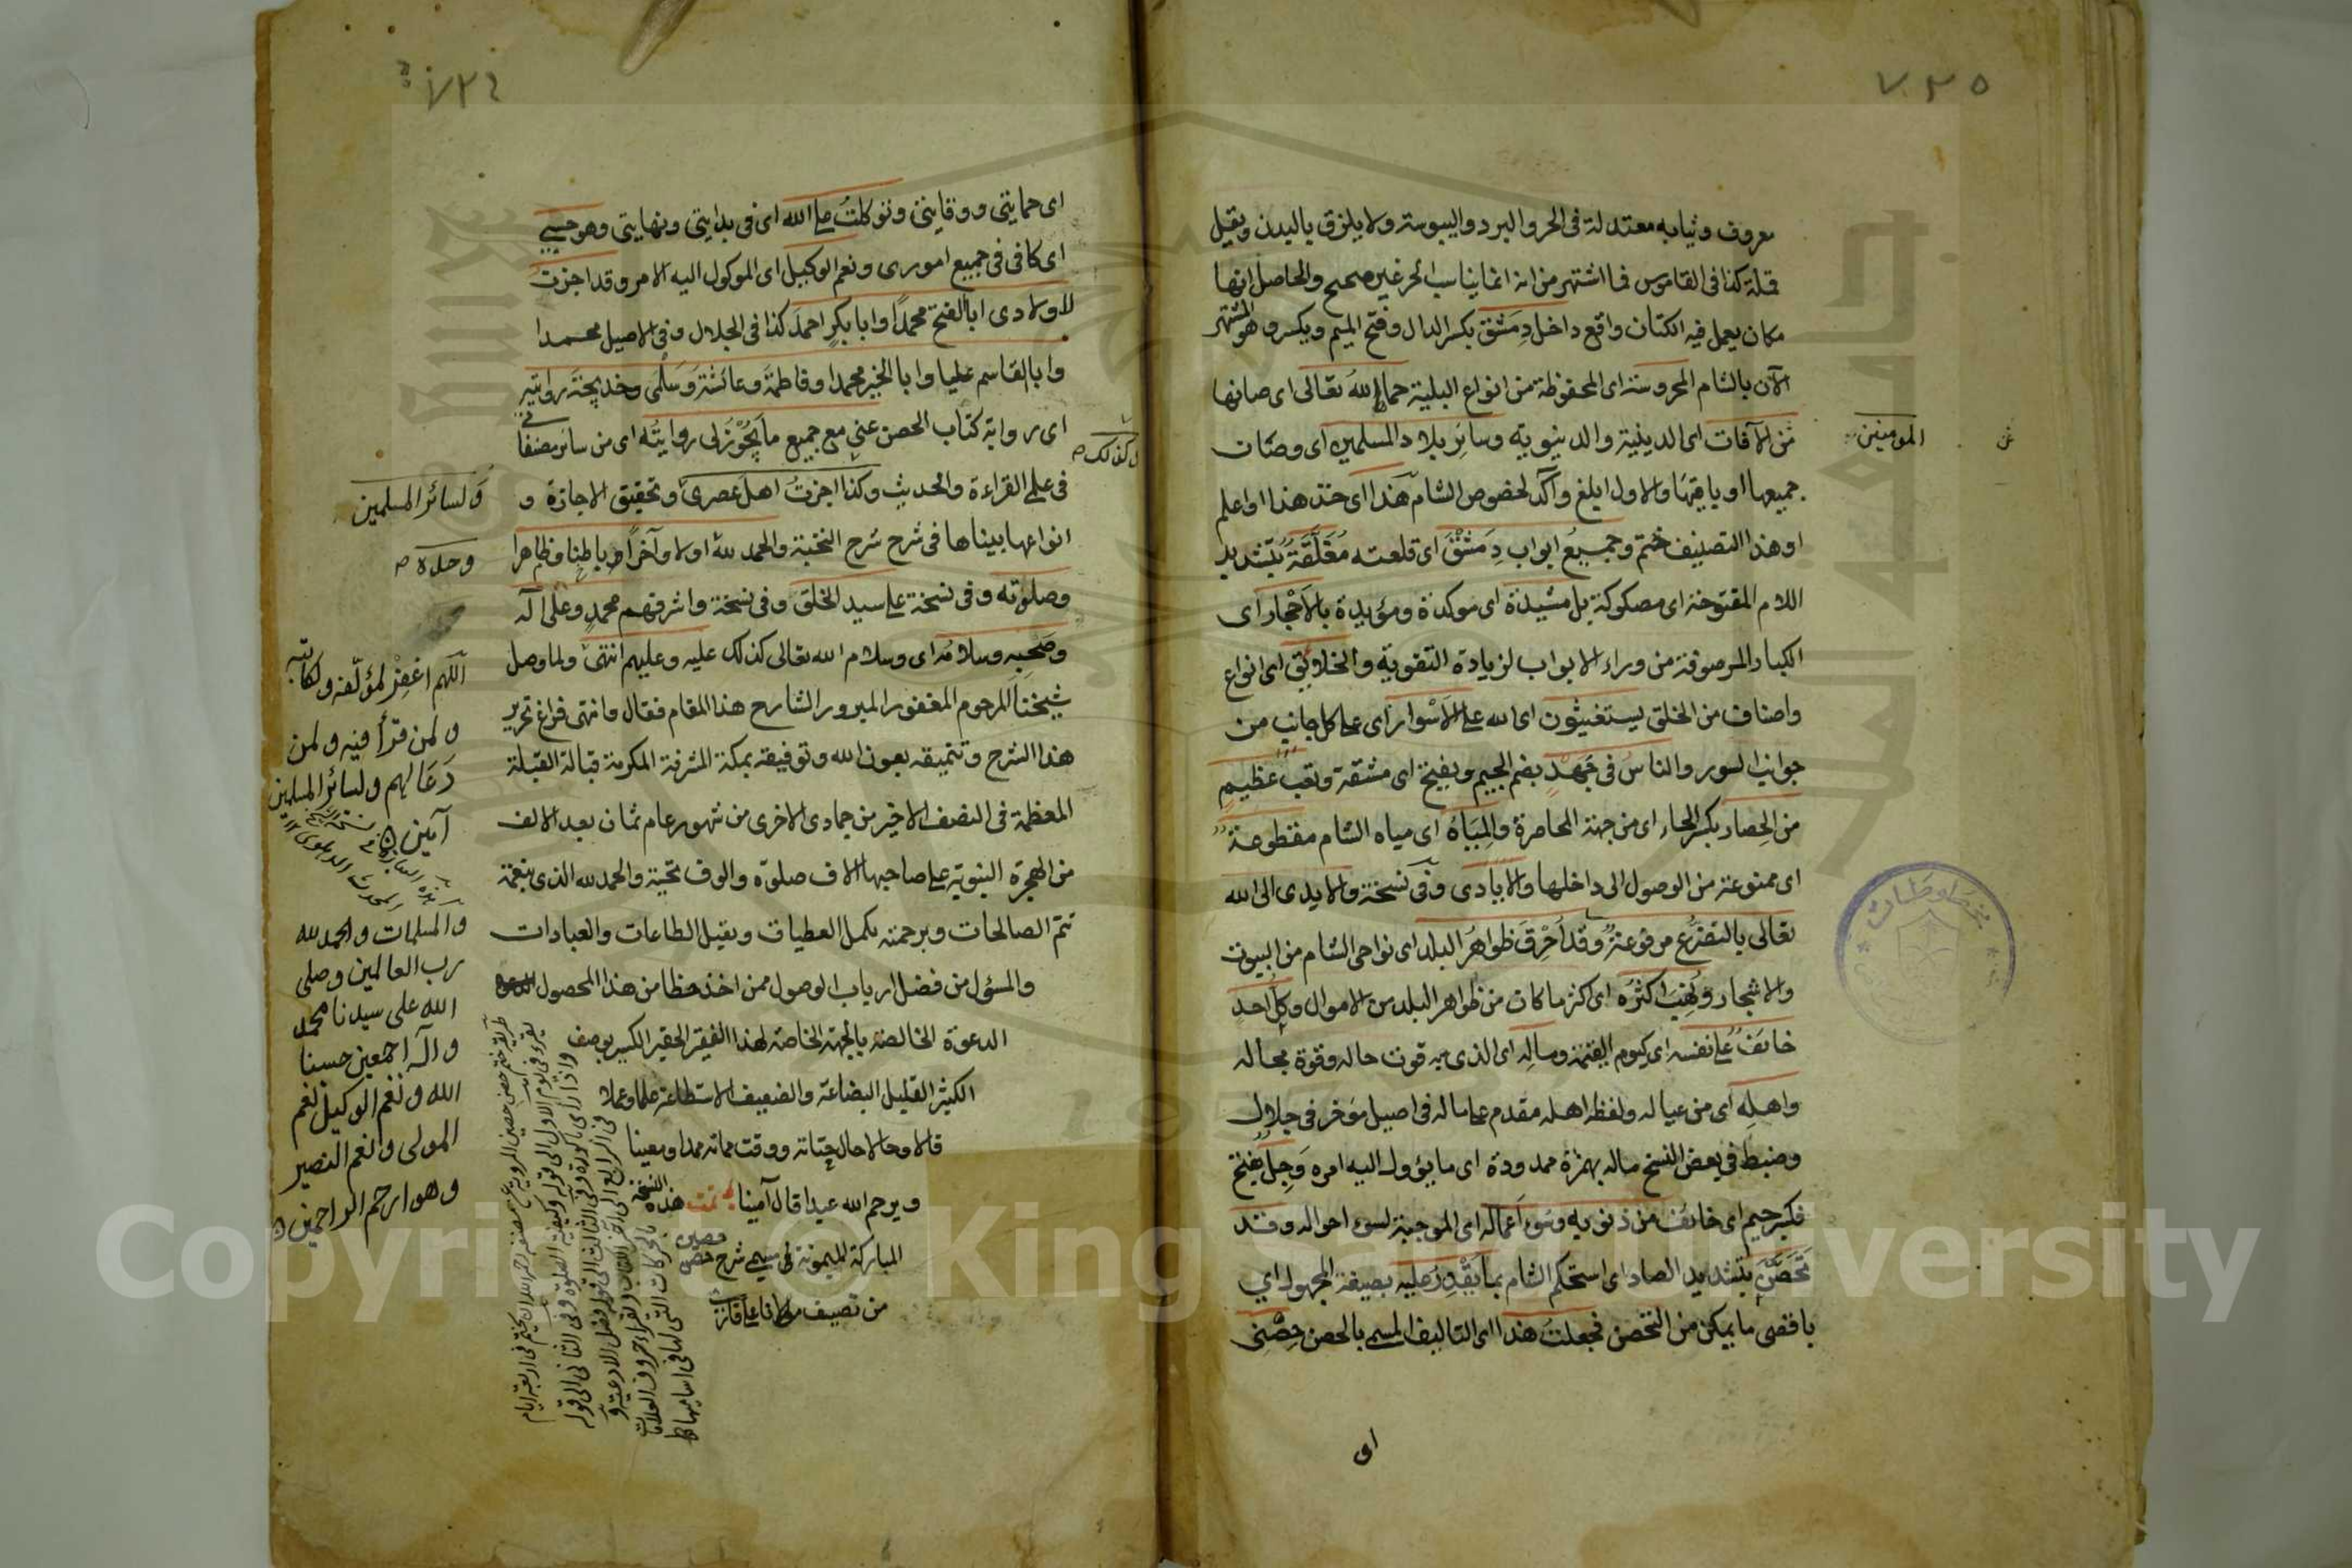 ٧٣٥
معروف وثيابه معتدلة فى الحر والبرد واليبوسة ولا يلزق بالبدن ويقيل
قلة كذا فى القاموس فما اشتهر من انه انما يناسب الحر غير صحيح والحاصل انها
مكان يعمل فيه الكتان واقع داخل دِمَشق بكسر الدال وفتح الميم ويكسر وهو المشتهر
الآن بالشام المحروسة اى المحفوظة من انواع البلية حماها الله تعالى اى صانها
من الآفات اى الدينية والدنيوية وسائر بلاد المسلمين اى وصان
المومنين
جميعها او باقيها والاول ابلغ وآكد لخصوص الشام هذا اى خذ هذا او اعلم
او هذا التصنيف ختم وجميعُ ابواب دِمَشْقَ اى قلعته مُغَلَّقَةٌ بتشديد
اللام المفتوحة اى مصكوكة بل مشيدة اى موكدة ومؤيدة بالاَحْجار اى
الكبار المرصوفة من وراء الابواب لزيادة التقوية والخلايق اى انواع
واصناف من الخلق يستغيثون اى الله على الاَسْوار اى على كل جانب من
جوانب السور والناس فى جَهدٍ بضم الجيم ويفتح اى مشقة وتعب عظيمٍ
من الحِصار بكسر الحاء اى من جهة المحاصرة والمِيَاهُ اى مياه الشام مقطوعةٌ
اى ممنوعة من الوصول الى داخلها والاَيَادى وفى نسخة والايدى الى الله
تعالى بالتضرُّع مرفوعةٌ وقد اُحْرِقَ ظواهرُ البلد اى نواحى الشام من البيوت
والاشجار ونُهِبَ اكثرُه اى اكثر ما كان من ظواهر البلد من الاموال وكلُّ احدٍ
خائفٌ على نفسه اى كيوم القيمة ومالِه اى الذى به قوت حاله وقوة مجاله
واهلِه اى من عياله ولفظه اهله مقدم على ماله فى اصيل مؤخر فى جلال
وضبط فى بعض النسخ ماله بهمزة ممدودة اى ما يؤول اليه امره وَجِلٌ بفتح
فكسر جيم اى خائف من ذنوبه وسُوءِ اَعماله اى الموجبة لسوء احواله وقد
تَحَصَّنَ بتشديد الصاد اى استحكم الشام بما يَقْدِرُ عليه بصيغة المجهول اي
باقصى ما يمكن من التحصن فجعلتُ هذا اى التاليف المسمى بالحصن حِصْنِى
اى
٧٣٤
اى حمايتى ووقايتى وتوكلتُ على الله اى فى بدايتى ونهايتى وهو حسبى
اى كافى فى جميع امورى ونعم الوكيل اى الموكول اليه الامر وقد اجزتُ
لاولادى ابا الفتح محمدًا وابا بكرٍ احمدَ كذا فى الجلال وفى الاصيل محمدا
وابا القاسم عليا وابا الخير محمدا وفاطمةَ وعائشةَ وسَلمَى وخديجةَ روايته
اى رواية كتاب الحصن عني مع جميع ما يَجُوْزُ لى روايتُه اى من سائر مصنفاتى
وكذلك
فى علمى القراءة والحديث وكذا اجزتُ اهل عصرى وتحقيق الاجازة و
انواعها بيناها فى شرح شرح النخبة والحمد للهِ اولا وآخراً وباطنا وظاهرا
وصلوته وفى نسخة على سيد الخلق وفى نسخة واشرفهم محمدٍ وعلى آله
وصَحْبِه وسلامُه اى وسلام الله تعالى كذلك عليه وعليهم انتهى ولما وصل
شيخنا المرحوم المغفور المبرور الشارح هذا المقام فقال وانتهى فراغ تحرير
هذا الشرح وتنميقه بعون الله وتوفيقه بمكة المشرفة المكرمة قبالة القبلة
المعظمة فى النصف الاخير من جمادى الاخرى من شهور عام ثمان بعد الالف
من الهجرة النبوية على صاحبها الاف صلوة والوف تحية والحمد لله الذى بنعمته
تتم الصالحات وبرحمته يكمل العطيات ويقيل الطاعات والعبادات
والمسؤل من فضل ارباب الوصول ممن اخذ حظا من هذا المحصول
الدعوة الخالصة بالجهة الخاصة لهذا الفقير الحقير الكسير بوصف
الكثير القليل البضاعة والضعيف الاستطاعة علما وعملا
قالا وحالا حال حياته ووقت مماته ممدا ومعينا
ويرحم الله عبدا قال آمينا تمت هذه النسخة
المباركة الميمونة فى سيمى شرح حصن حصين
من تصنيف ملا على قارى
ولسائر المسلمين
وحده
اللهم اغفِرْ لمؤلّفه ولكاتبه
ولمن قرأ فيه ولمن
دَعَا لهم ولسائر المسلمين
آمين
والمسلمات والحمد لله
رب العالمين وصلى
الله على سيدنا محمد
وآله اجمعين حسبنا
الله ونعم الوكيل نعم
المولى ونعم النصير
وهو ارحم الراحمين
مخطوطات
Copyright © King Saud University